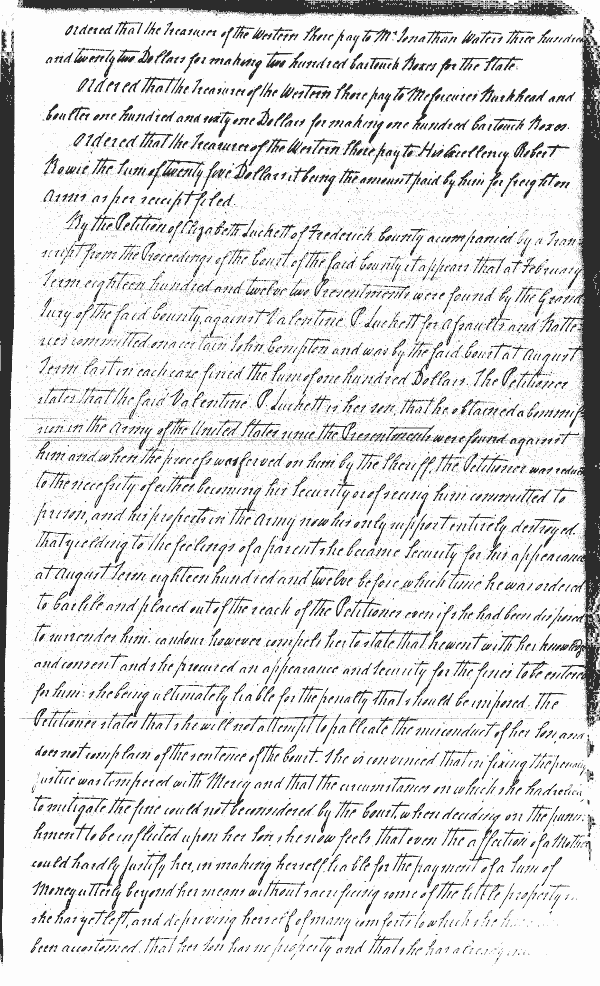 Ordered that the Treasurer of the Western Shore pay to Mr Jonathan Waters three hundred
and twenty two Dollars for making two hundred Cartouch Boxes for the State.
Ordered that the Treasurer of the Western Shore pay to Messieurs Burkhead and
Coulter one hundred and sixty one Dollars for making one hundred Cartouch Boxes.
Ordered that the Treasurer of the Western Shore pay to His Excellency Robert
Bowie the Sum of twenty five Dollars it being the amount paid by him for freight on
Arms as per receipt filed.
By the Petition of Elizabeth Luckett of Frederick County acompanied by a Tran-
script from the Proceedings of the Court of the said County it appears that at February
Term eighteen hundred and twelve two Presentments were found by the Grand
Jury of the said County, against Valentine P. Luckett for assaults and Batte-
ries committed on a certain John Compton and was by the said Court at August
Term last in each case fined the Sum of one hundred Dollars. The Petitioner
states that the said Valentine P. Luckett is her son, that he obtained a Commis-
sion in the Army of the United States since the Presentments were found against
him and when the process was served on him by the Sheriff, the Petitioner was reduced
to the necessity of either becoming his Security or of seeing him committed to
prison, and his prospects in the Army now his only support entirely destroyed.
that yielding to the feelings of a parent she became Security for his appearance
at August Term eighteen hundred and twelve before which time he was ordered
to Carlile and placed out of the reach of the Petitioner even if she had been disposed
to surrender him. candour however compels her to state that he went with her knowledge
and consent and she procured an appearance and Security for the fines to be entered
for him: she being ultimately liable for the penalty that should be imposed. The
Petitioner states that she will not attempt to palliate the misconduct of her Son and
does not complain of the sentence of the Court. She is convinced that in fixing the penalty
justice was tempered with Mercy and that the circumstances on which she had relied
to mitigate the fine could not be considered by the Court when deciding on the punis-
hment to be inflicted upon her Son she now feels that even the affection of a Mother
could hardly justify her, in making herself liable for the payment of a Sum of
Money utterly beyond her means without sacrificing some of the little property
she has yet left, and depriving herself of many comforts to which she
been accustomed. that her Son has no property and that she has already